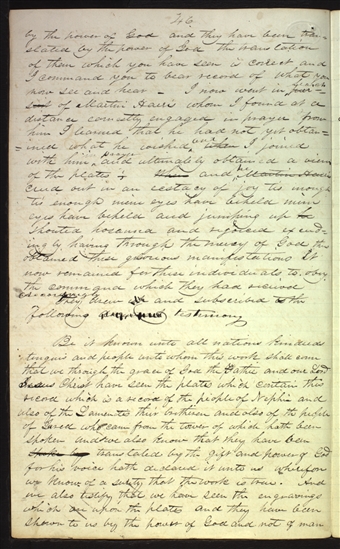 46
by the power of God and they have been tran-
slated by the power of God the translation
of them which you have seen is correct and
I command you to bear record of what you
now see and hear - I now went in pursuit
of Martin Harris whom I found at a
distance earnestly engaged in prayer from
him I learned that he had not yet obtain-
ined what he wished, and I joined
with him in prayer and ultimately obtained a view
of the plates & and he
cried out in an ecstacy of joy tis enough
tis enough mine eyes have beheld mine
eyes have beheld and jumping up
shouted hosanna and rejoiced exceed-
ing by having through the mercy of God thus
obtained these glorious manifestations It
now remained for these individuals to obey
the command which they had received
they drew up and subscribed to the
following testimony
Be it known unto all nations kindreds
tongues and people unto whom this work shall come
that we through the grace of God the Father and our Lord
Jesus Christ have seen the plates which contain this
record which is a record of the people of Nephi and
also of the Lamanites their brethren and also of the people
of Jared who came from the tower of which hath been
spoken and we also know that they have been
translated by the gift and power of God
for his voice hath declared it unto us wherefore
we know of a surety that the work is true. And
we also testify that we have seen the engravings
which are upon the plates and they have been
shown to us by the power of God and not of man